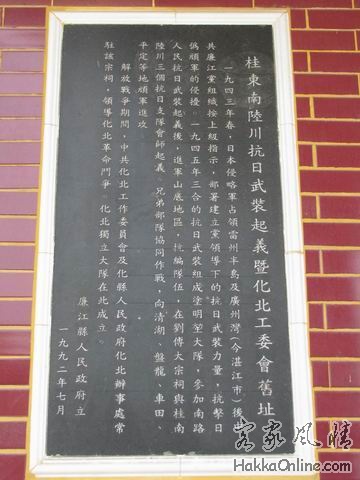 桂東南陸川抗日武裝起義暨化北工委會舊址
一九四三年春，日本侵略軍占領雷州半島及廣州灣（今湛江市）後，中
共廉江黨組織按上級指示，部署建立黨領導下的抗日武裝力量，抗擊日
偽頑軍的侵擾。一九四五年三合的抗日武裝組成塗明堃大隊，參加南路
人民抗日武裝起義後，進軍山底地區，抗編隊伍，在劉傅大宗祠與桂南
陸川三個抗日支隊會師起義。兄弟部隊協同作戰，向清湖、盤龍、車田、
平定等地頑軍進攻
解放戰爭期間，中共化北工作委員會及化縣人民政府化北辦事處常
駐該宗祠，領導化北革命鬥爭。化北獨立大隊在此成立。
廉江縣人民政府立
一九九二年七月
客家風情
HakkaOnline.com